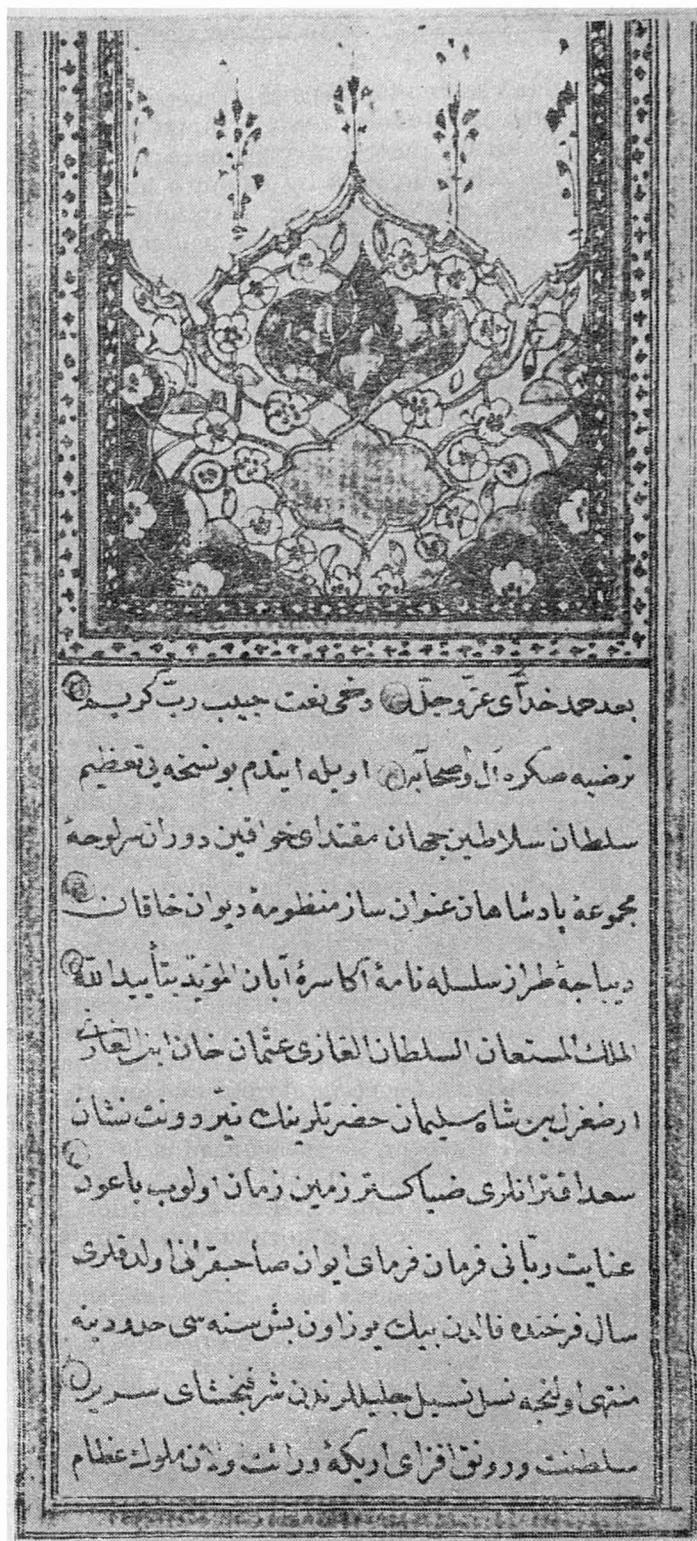 بعد حمد خدای عزّ وجلّ دخی نعت حبیب ربّ کریم
ترضیه صکره آل واصحابه اویله ایتدم بو نسخه یی تعظیم
سلطان سلاطین جهان مقتدای خواقین دوران سرلوحهٔ
مجموعهٔ پادشاهان عنوان ساز منظومهٔ دیوان خاقان
دیباجهٔ طراز سلسله نامهٔ اکاسرهٔ آبان المؤید بتأیید الله
الملك المستعان السلطان الغازی عثمان خان ابن الغازی
ارطغرل بن شاه سلیمان حضرتلرینك نیر دونت نشان
سعد اقترانلری ضیاکستر زمین زمان اولوب باعون
عنایت ربّانی فرمان فرمای ایوان صاحبقرانی اولدقلری
سال فرخنده فالدن بیك یوز اون بش سنه سی حدودینه
منتهی اولنجه نسل نسیل جلیللرندن شرفبخشای سریر
سلطنت ورونق افزای اریکهٔ وراثت اولان ملوك عظام